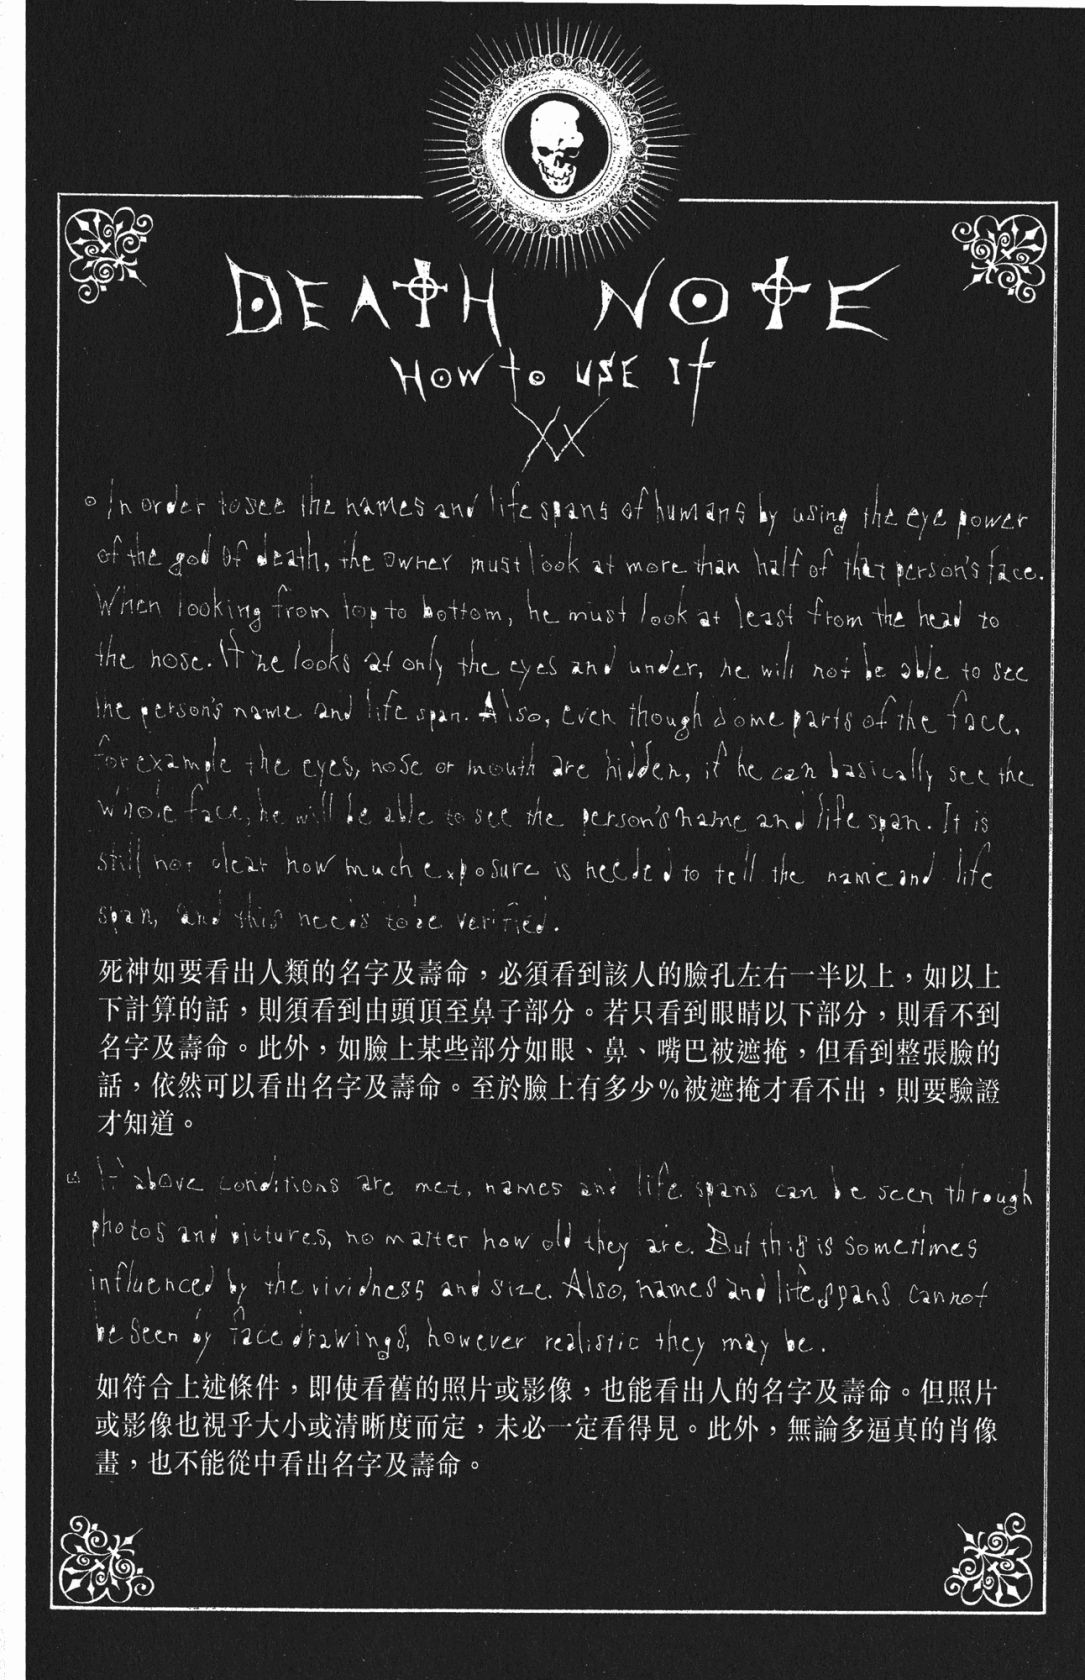 DEATH NOTE
HOW to USE It
XX
In order to see the names and life spans of humans by using the eye power
of the god of death, the owner must look at more than half of that person's face.
When looking from top to bottom, he must look at least from the head to
the nose. If he looks at only the eyes and under, he will not be able to see
the person's name and life span. Also, even though some parts of the face,
for example the eyes, nose or mouth are hidden, if he can basically see the
whole face, he will be able to see the person's name and life span. It is
still not clear how much exposure is needed to tell the name and life
span, and this needs to be verified.
死神如要看出人類的名字及壽命，必須看到該人的臉孔左右一半以上，如以上
下計算的話，則須看到由頭頂至鼻子部分。若只看到眼睛以下部分，則看不到
名字及壽命。此外，如臉上某些部分如眼、鼻、嘴巴被遮掩，但看到整張臉的
話，依然可以看出名字及壽命。至於臉上有多少%被遮掩才看不出，則要驗證
才知道。
If above conditions are met, names and life spans can be seen through
photos and pictures, no matter how old they are. But this is sometimes
influenced by the vividness and size. Also, names and life spans cannot
be seen by face drawings, however realistic they may be.
如符合上述條件，即使看舊的照片或影像，也能看出人的名字及壽命。但照片
或影像也視乎大小或清晰度而定，未必一定看得見。此外，無論多逼真的肖像
畫，也不能從中看出名字及壽命。